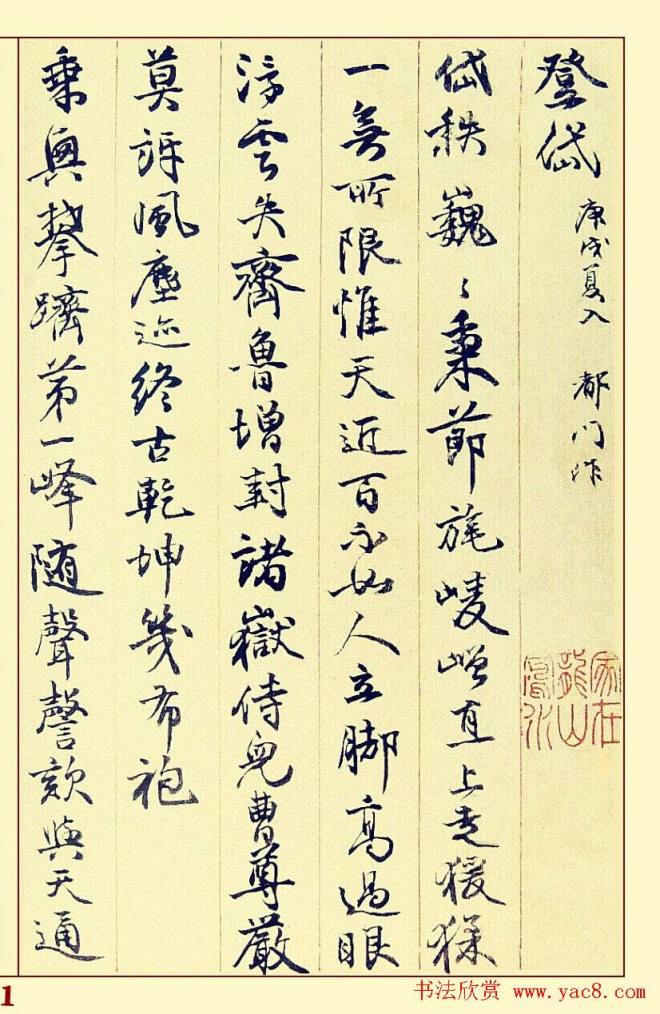 登岱 庚戌夏入 都门作
岱秩巍々秉節旄崚嶒直上走猨猱
一無所限惟天近百不如人立脚高過眼
浮雲失齊魯增封諸嶽侍兒曹尊嚴
莫訝風塵迹終古乾坤幾布袍
乘興攀躋第一峰随聲謦欬與天通
家在
龍山
1
书法欣赏 www.yac8.com